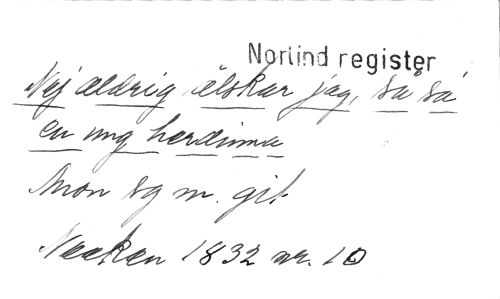 Norlind register
Nej aldrig älskar jag, så så
en ung herdinna
Mon sg m. git
Necken 1832 nr. 10